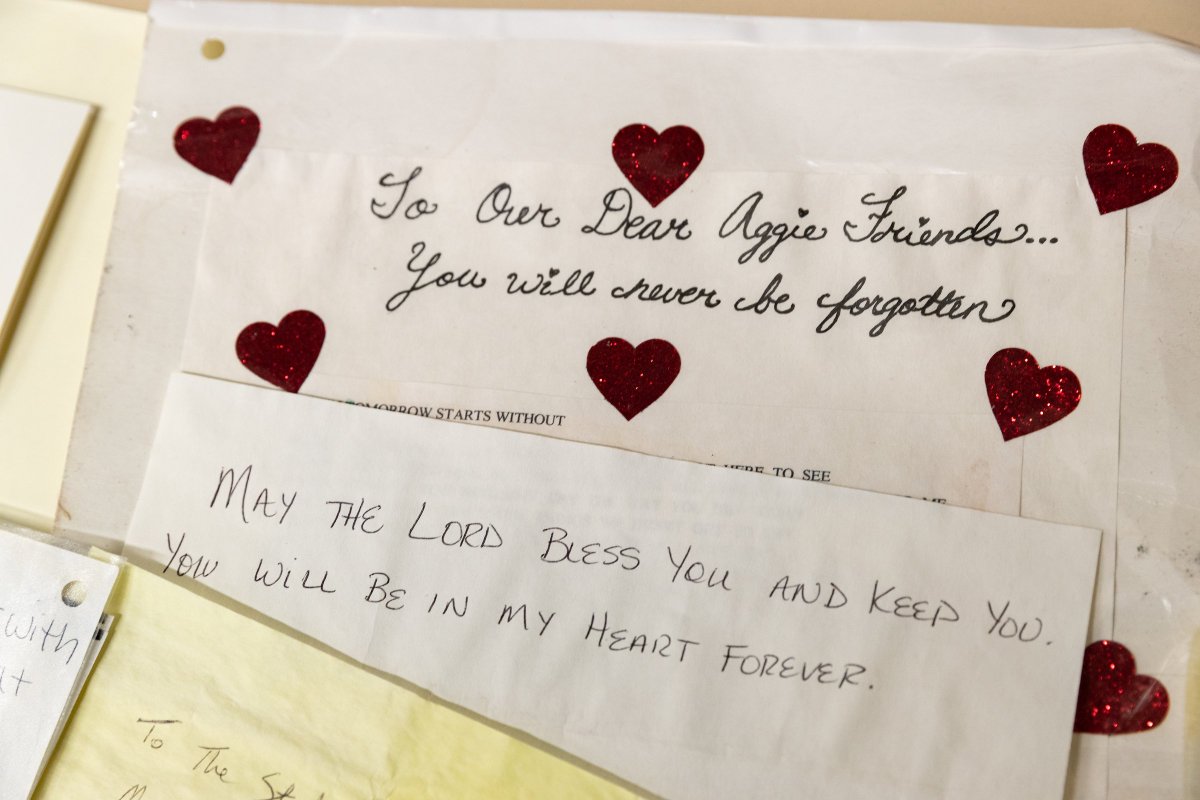 To Our Dear Aggie Friends...
You will never be forgotten
TOMORROW STARTS WITHOUT
HERE TO SEE
ME
MAY THE LORD BLESS YOU AND KEEP YOU.
YOU WILL BE IN MY HEART FOREVER.
With
To The